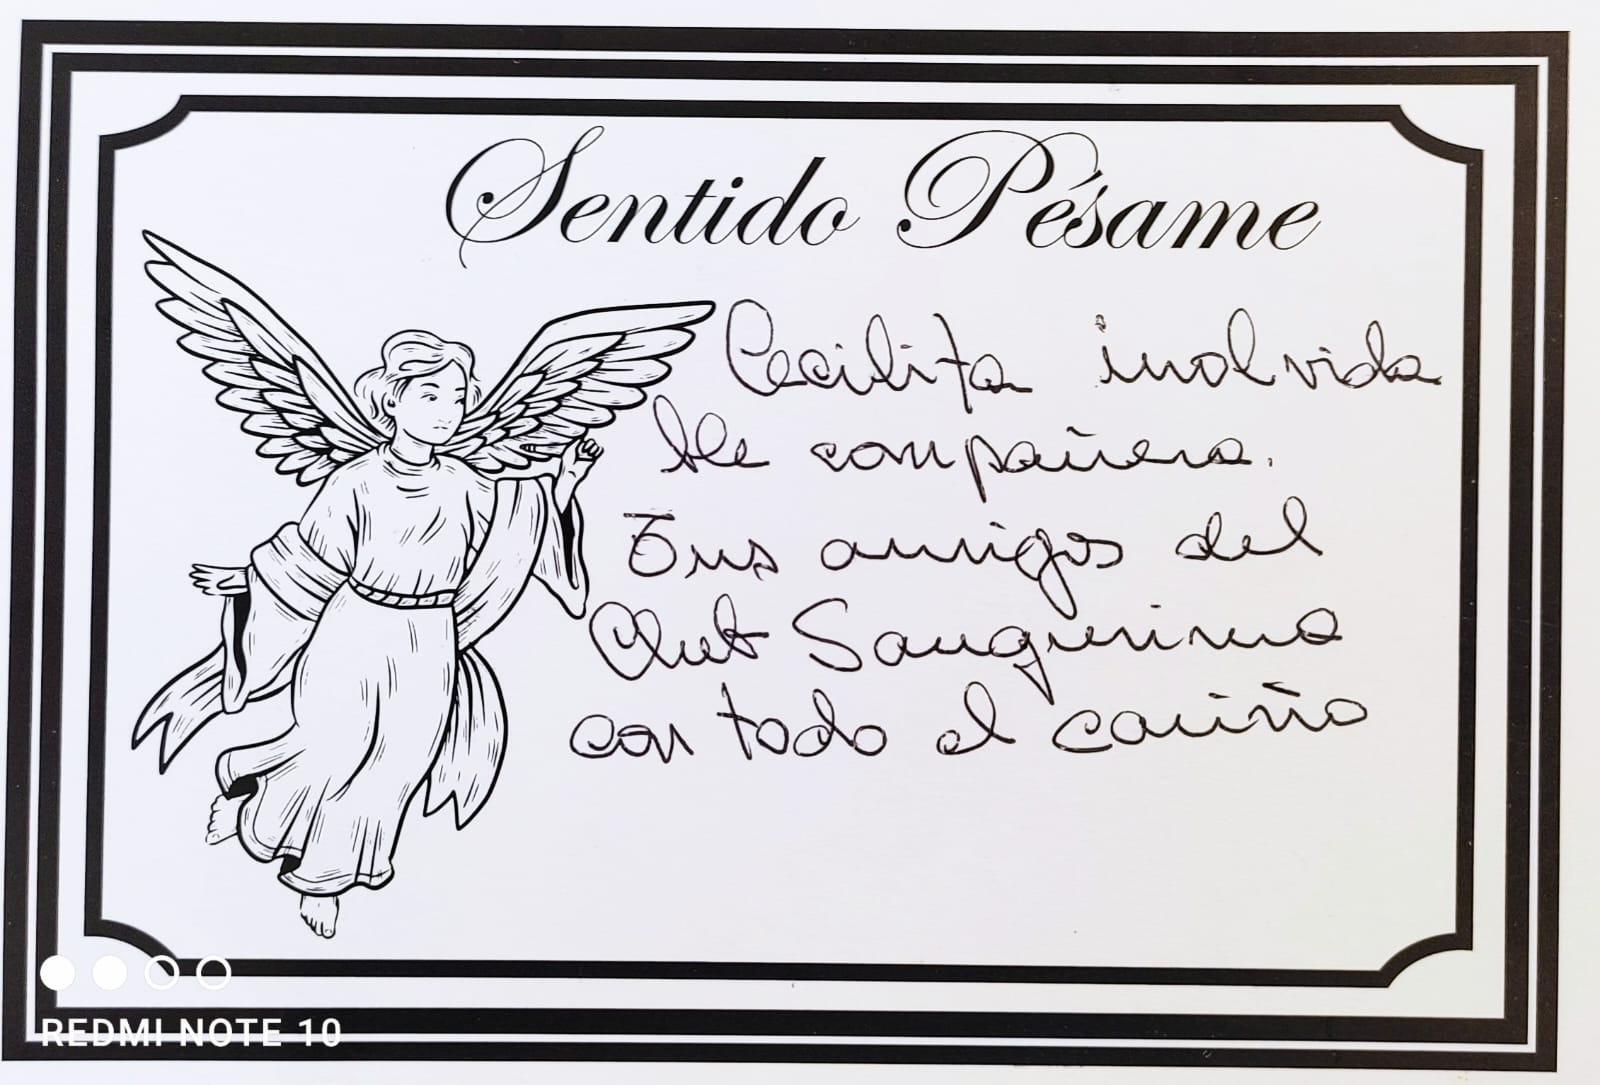 Sentido Pésame
Cecilita inolvida
ble compañera.
Tus amigos del
Club Sanguerino
con todo el cariño
REDMI NOTE 10